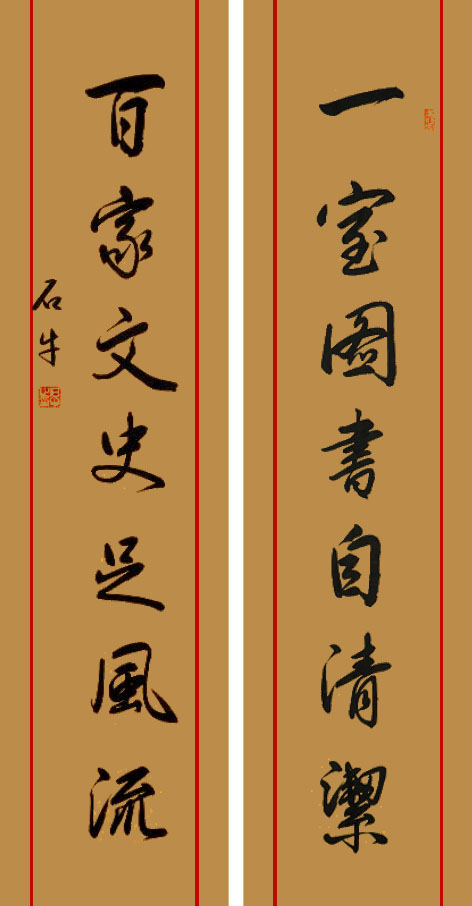 一室图書自清潔
百家文史足風流
石牛